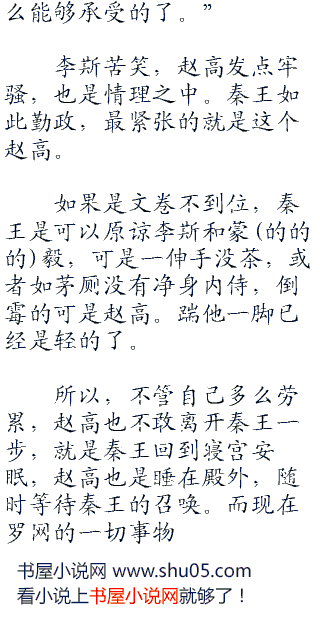 么能够承受的了。”
李斯苦笑，赵高发点牢
骚，也是情理之中。秦王如
此勤政，最紧张的就是这个
赵高。
如果是文卷不到位，秦
王是可以原谅李斯和蒙(的的
的)毅，可是一伸手没茶，或
者如茅厕没有净身内侍，倒
霉的可是赵高。踹他一脚已
经是轻的了。
所以，不管自己多么劳
累，赵高也不敢离开秦王一
步，就是秦王回到寝宫安
眠，赵高也是睡在殿外，随
时等待秦王的召唤。而现在
罗网的一切事物
书屋小说网 www.shu05.com
看小说上书屋小说网就够了！